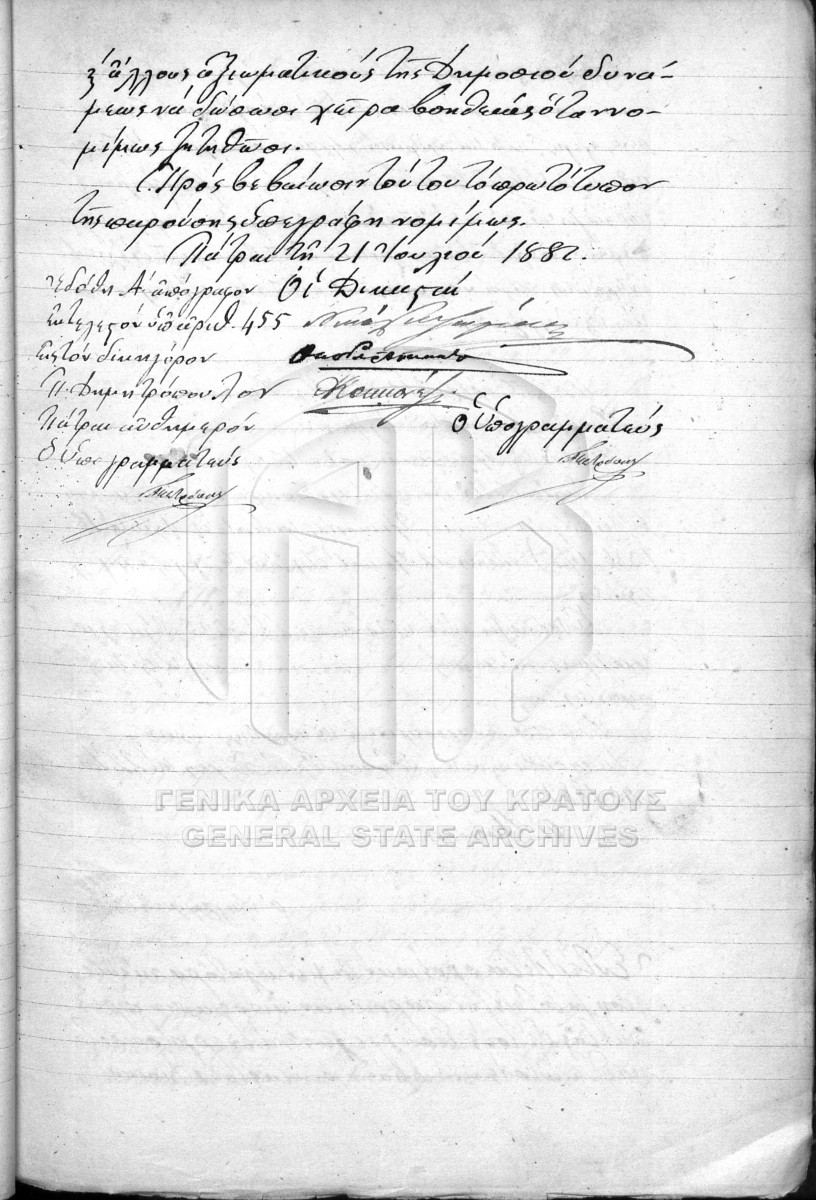 ξ ἄλλους ἀξιωματικοὺς τῆς Δημοσίου δυνά-
μεως νὰ δώσωσι χεῖρα βοηθείας ὅταν νο-
μίμως ζητηθῶσι.
Πρὸς βεβαίωσιν τούτου τὸ πρωτότυπον
τῆς παρούσης ὑπεγράφη νομίμως.
Πάτραι τῇ 21 Ἰουλίου 1882.
Ἐδόθη Α. ἀπόγραφον Οἱ Δικασταὶ
ἐκτελεστὸν ὑπ' ἀριθ. 455
εἰς τὸν δικηγόρον
Π. Δημητρόπουλον
Πάτραι αὐθημερόν
Ὁ Ὑπογραμματεύς
Ὁ Ὑπογραμματεύς
ΓΕΝΙΚΑ ΑΡΧΕΙΑ ΤΟΥ ΚΡΑΤΟΥΣ
GENERAL STATE ARCHIVES